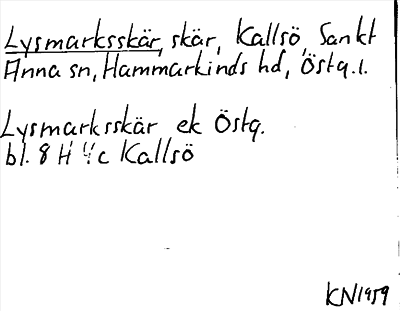 Lysmarksskär, skär, Kallsö, Sankt
Anna sn, Hammarkinds hd, Östg. l.
Lysmarksskär ek Östg.
bl. 8 H c Kallsö
KN1959